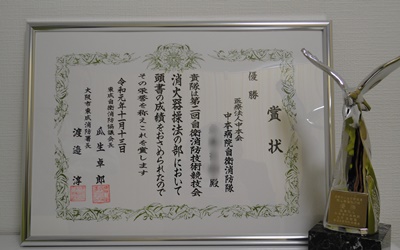 賞状
優勝
医療法人中本会
中本病院自衛消防隊
殿
貴隊は第二回自衛消防技術競技会
消火器操法の部において
頭書の成績をおさめられたので
その栄誉を称えこれを賞します
令和元年十一月十三日
東成自衛消防協議会長
瓜生卓郎
大阪市東成消防署長
渡邉淳